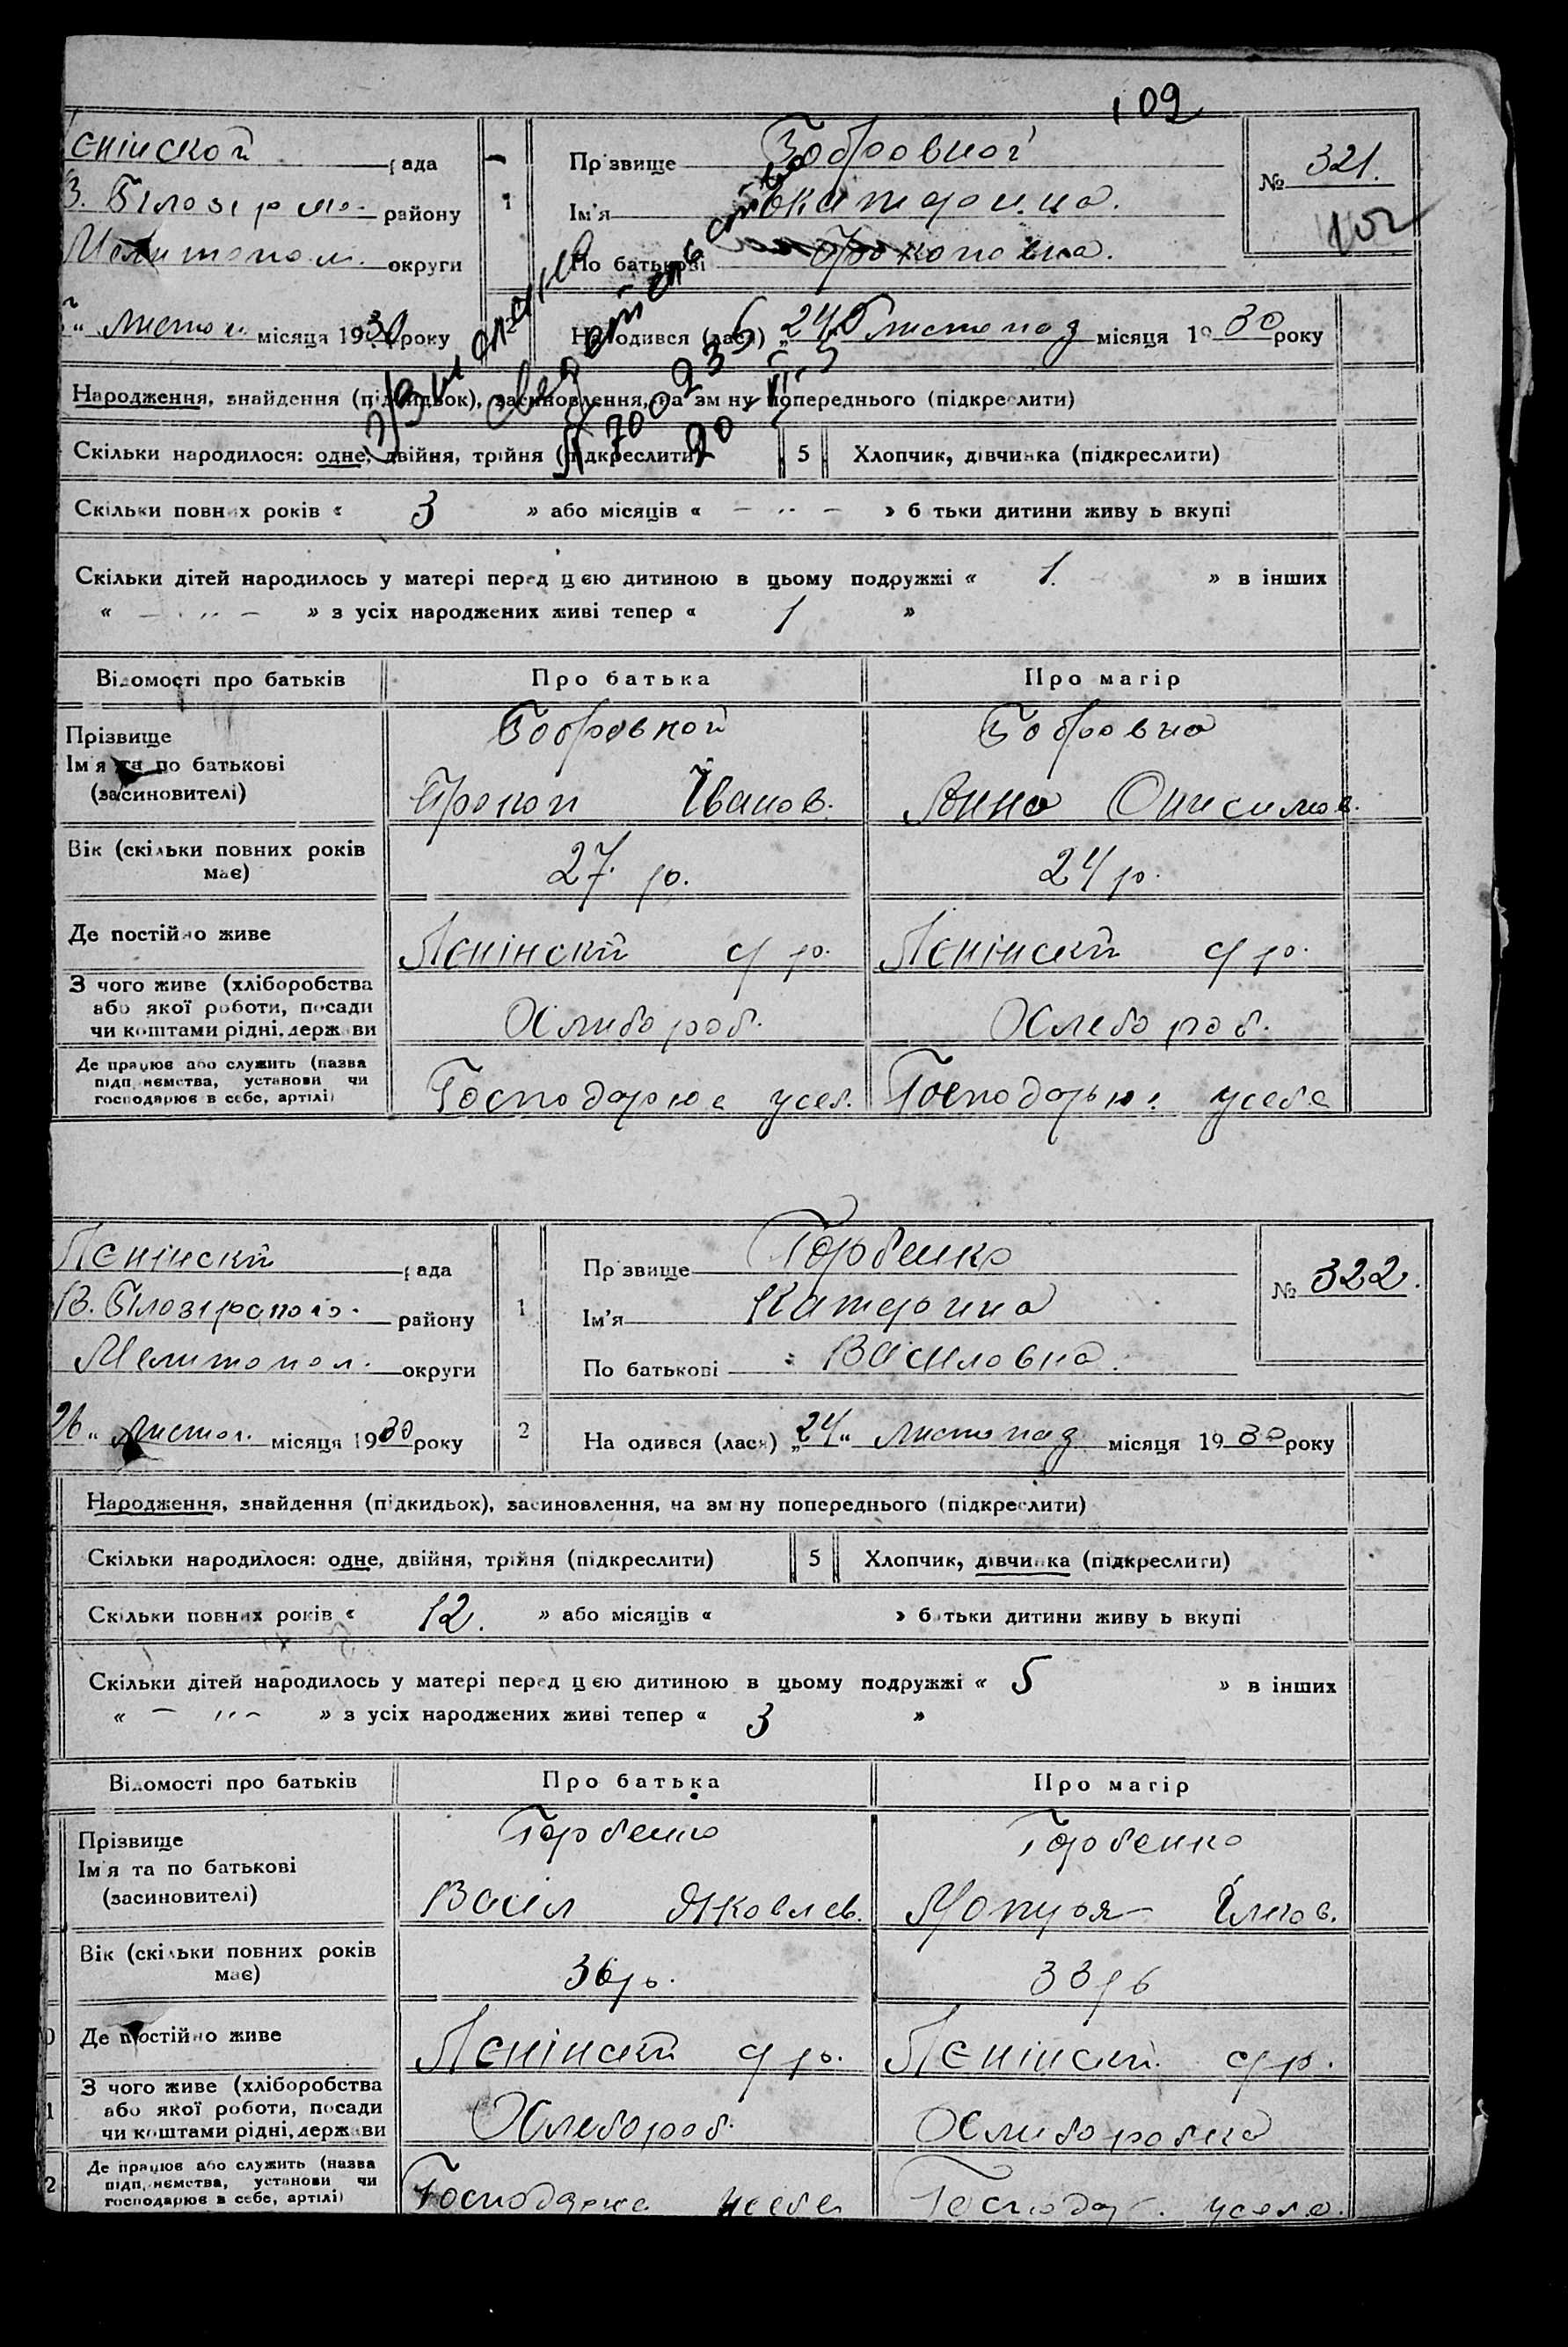 109
єнінской рада
1
Прізвище Бобровної
№ 321.
В. Білозірсько. району
Ім'я Катерина.
102
Мелитопол. округи
По батькові Прокоповна.
" листоп. місяця 1930 року
Народився (лася) „24" листопад місяця 1930 року
Выдано
свидетельство
700235
Народження, знайдення (підкидьок), засиновлення, на зміну попереднього (підкреслити)
Скільки народилося: одне, двійня, трійня (підкреслити)
5
Хлопчик, дівчинка (підкреслити)
Скільки повних років « 3 » або місяців « — „ — » батьки дитини живуть вкупі
Скільки дітей народилось у матері перед цією дитиною в цьому подружжі « 1. » в інших
« — „ — » з усіх народжених живі тепер « 1 »
Відомості про батьків
Про батька
Про матір
Прізвище
Ім'я та по батькові
(засиновителі)
Бобровной
Прокоп Іванов.
Бобровна
Анна Онисимов.
Вік (скільки повних років
має)
27 р.
24 р.
Де постійно живе
Лєнінскй с р.
Лєнінскй с р.
З чого живе (хліборобства
або якої роботи, посади
чи коштами рідні, держави
Хлибороб.
Хлебороб.
Де працює або служить (назва
підприємства, установи чи
господарює в себе, артілі)
Господарює усеб.
Господарює усебе
Лєнінскй рада
1
Прізвище Горбенко
№ 322.
В. Білозірського. району
Ім'я Катерина
Мелитопол. округи
По батькові Василовна.
26 „ листоп. місяця 1930 року
2
Народився (лася) „24" листопад місяця 1930 року
Народження, знайдення (підкидьок), засиновлення, на зміну попереднього (підкреслити)
Скільки народилося: одне, двійня, трійня (підкреслити)
5
Хлопчик, дівчинка (підкреслити)
Скільки повних років « 12. » або місяців « » батьки дитини живуть вкупі
Скільки дітей народилось у матері перед цією дитиною в цьому подружжі « 5 » в інших
« — „ — » з усіх народжених живі тепер « 3 »
Відомості про батьків
Про батька
Про матір
Прізвище
Ім'я та по батькові
(засиновителі)
Горбенко
Васил Яковлев.
Горбенко
Вік (скільки повних років
має)
36 р.
33 р
Де постійно живе
Лєнінскй с р.
Лєнінскй с р.
З чого живе (хліборобства
або якої роботи, посади
чи коштами рідні, держави
Хлебороб.
Хлиборобка
Де працює або служить (назва
підприємства, установи чи
господарює в себе, артілі)
Господарює усебе
Господар. усебе.